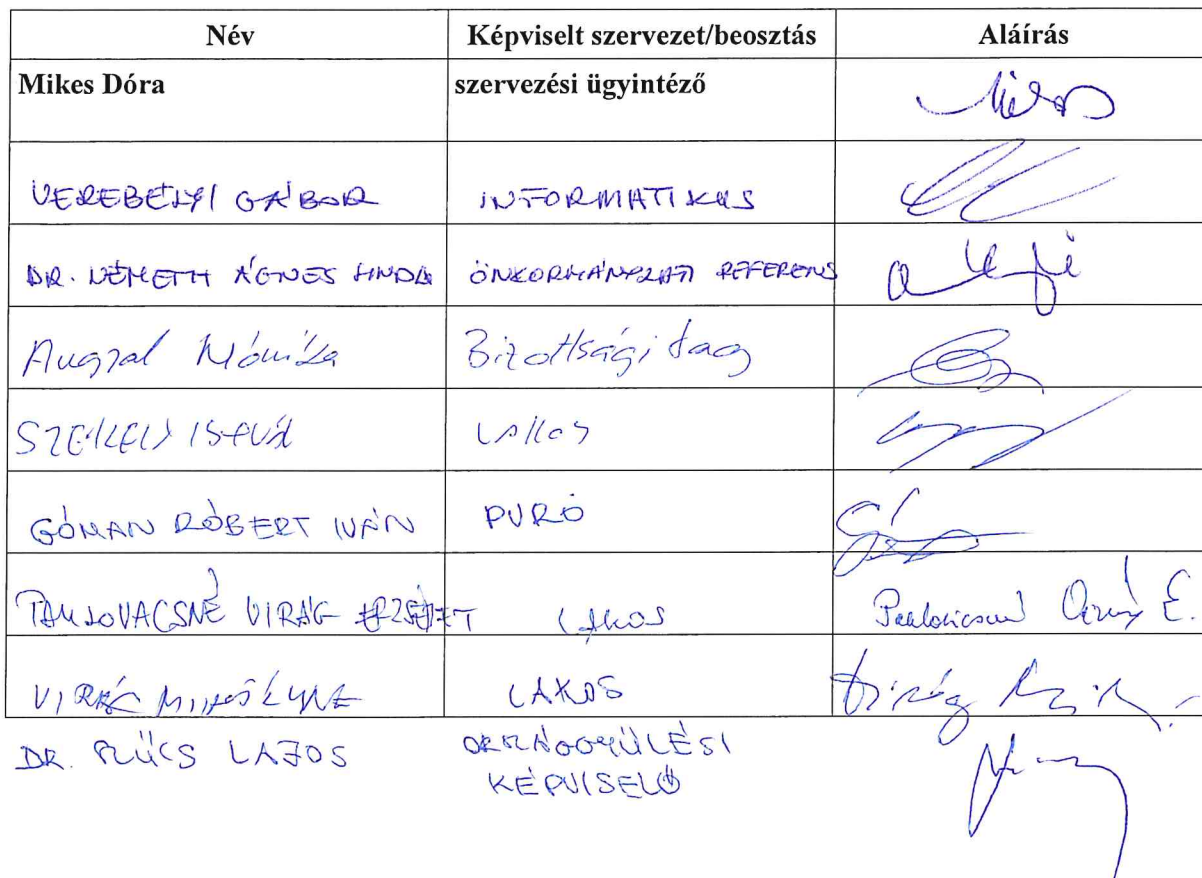 Név Képviselt szervezet/beosztás Aláírás
Mikes Dóra szervezési ügyintéző
VEREBÉLYI GÁBOR INFORMATIKUS
DR. NÉMETH ÁGNES LINDA ÖNKORMÁNYZATI REFERENS
Augzal Mónika Bizottsági tag
SZÉKELY ISTVÁN LAKOS
GÓMAN RÓBERT IVÁN PURÓ
VIRÁG ERZSÉBET LAKOS
VIRÁG LAKOS
DR. SZŰCS LAJOS ORSZÁGGYŰLÉSI
KÉPVISELŐ